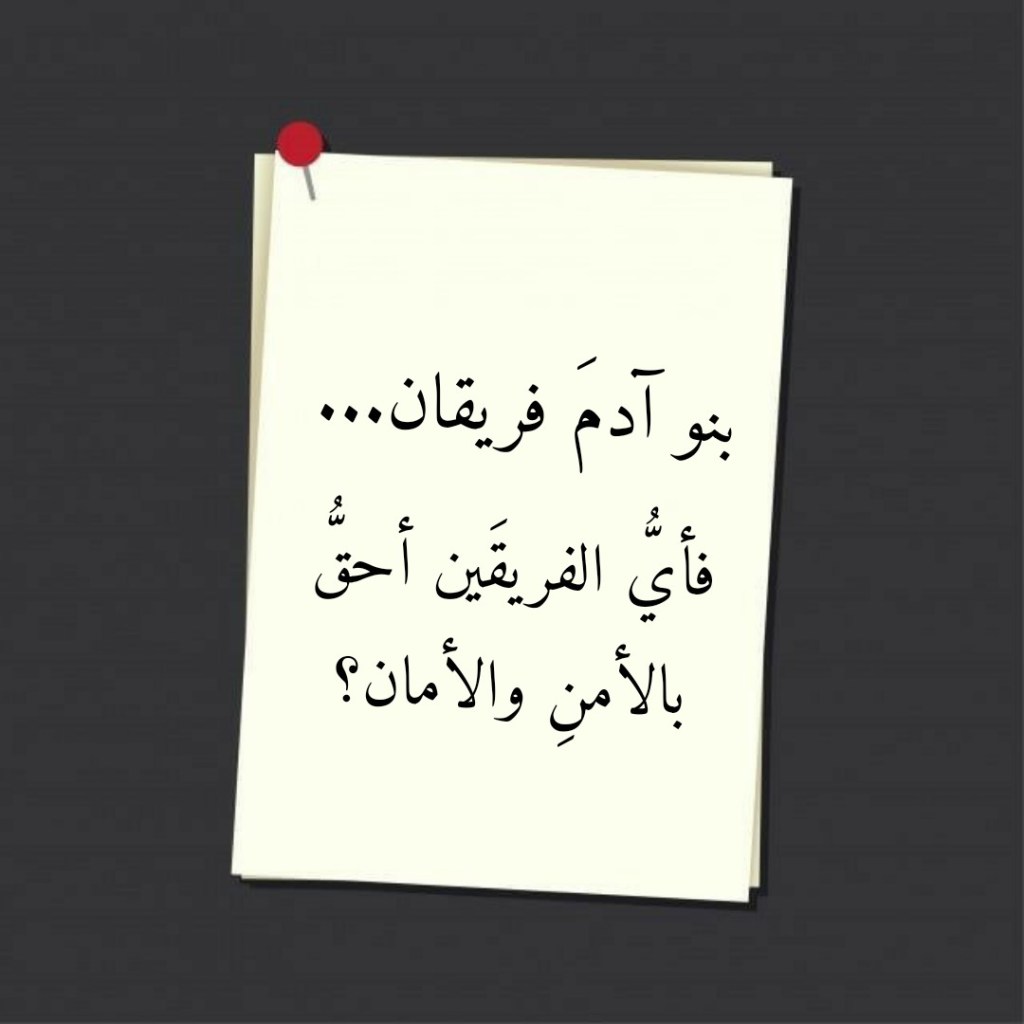 بنو آدمَ فريقان...
فأيُّ الفريقَين أحقُّ
بالأمنِ والأمان؟